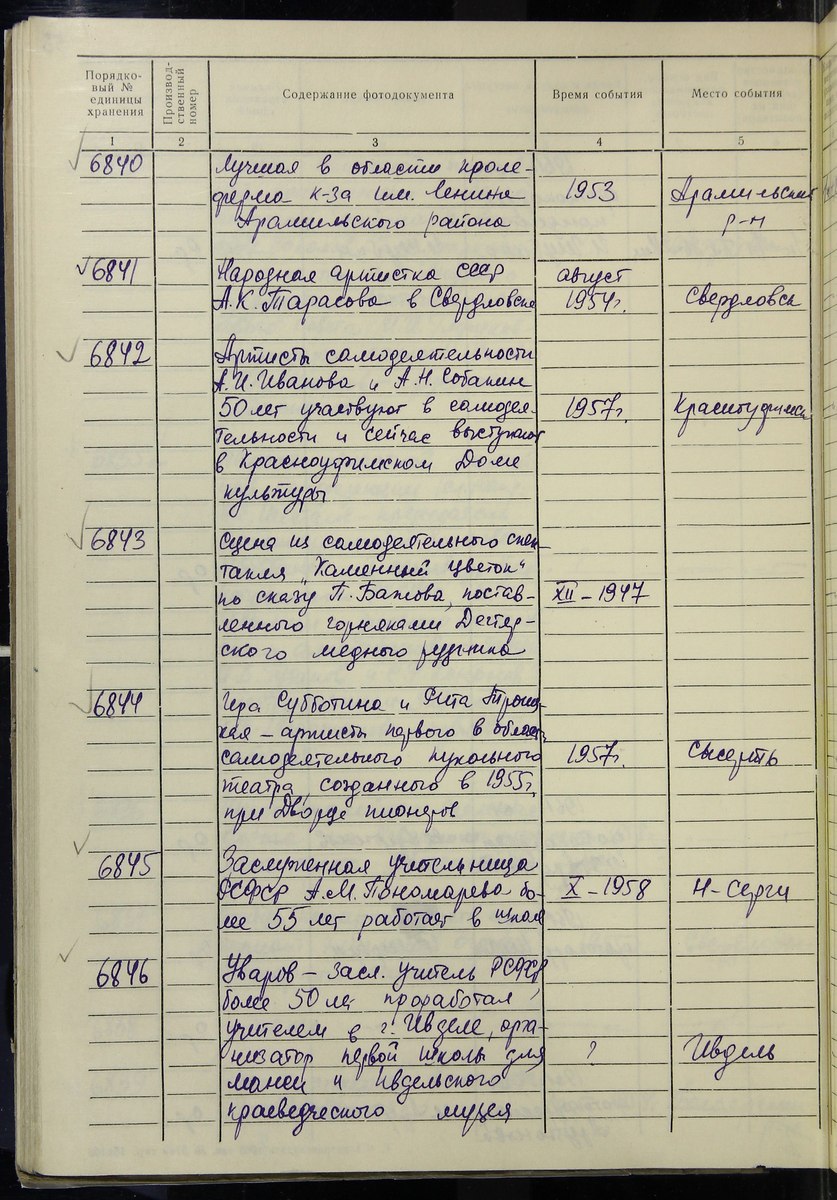 Порядко-
вый №
единицы
хранения
Производ-
ственный
номер
Содержание фотодокумента
Время события
Место события
1 2 3 4 5
6840 Лучшая в области кроле-
ферма к-за им. Ленина 1953 Арамильский
Арамильского района р-н
6841 Народная артистка СССР август
А.К. Тарасова в Свердловске 1954г. Свердловск
6842 Артисты самодеятельности
А.И. Иванова и А.Н. Собакин
50 лет участвуют в самодея- 1957г. Красноуфимск
тельности и сейчас выступают
в Красноуфимском Доме
культуры
6843 Сцена из самодеятельного спек-
такля „Каменный цветок"
по сказу П. Бажова, постав- XII – 1947
ленного горняками Дегтяр-
ского медного рудника
6844 Гера Субботина и Рита Троиц-
кая – артисты первого в област
самодеятельного кукольного 1957г. Сысерть
театра, созданного в 1955г.
при Дворце пионеров
6845 Заслуженная учительница
РСФСР А.М. Пономарева бо- X – 1958 Н-Серги
лее 55 лет работает в школе
6846 Уваров – засл. учитель РСФСР
более 50 лет проработал
учителем в г. Ивделе, орга-
низатор первой школы для ? Ивдель
манси и Ивдельского
краеведческого музея